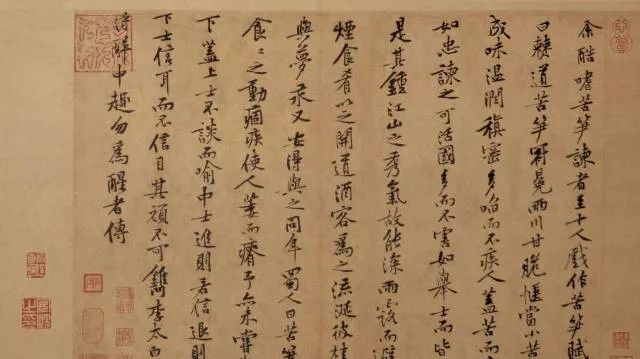 余酷嗜苦筍諫者至十人戲作苦筍賦
曰僰道苦筍冠冕兩川甘脆愜當小苦
成味溫潤縝密多啗而不疾人蓋苦而
如忠諫之可活國多而不害如舉士而皆
是其鍾江山之秀氣故能深雨露而避
煙食肴以之開道酒客爲之流涎彼桂
與夢汞又安得與之同年蜀人曰苦筍
食〻之動痼疾使人萎而瘠予亦未嘗
下蓋上士不談而喻中士進則若信退則
下士信耳而不信目其頑不可鐫李太白
得醉中趣勿爲醒者傳